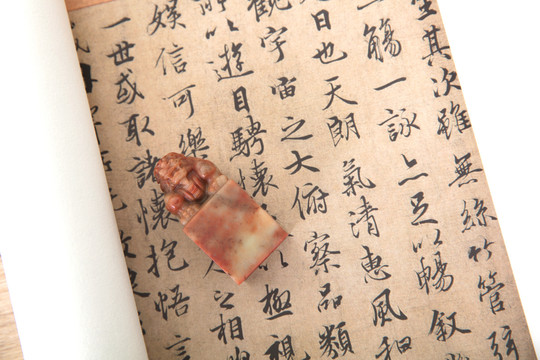 坐其次雖無絲竹管弦
一觴一詠亦足以暢叙
是日也天朗氣清惠風和
觀宇宙之大俯察品類
所以遊目騁懷以極視
娛信可樂人之相與
一世或取諸懷抱悟言